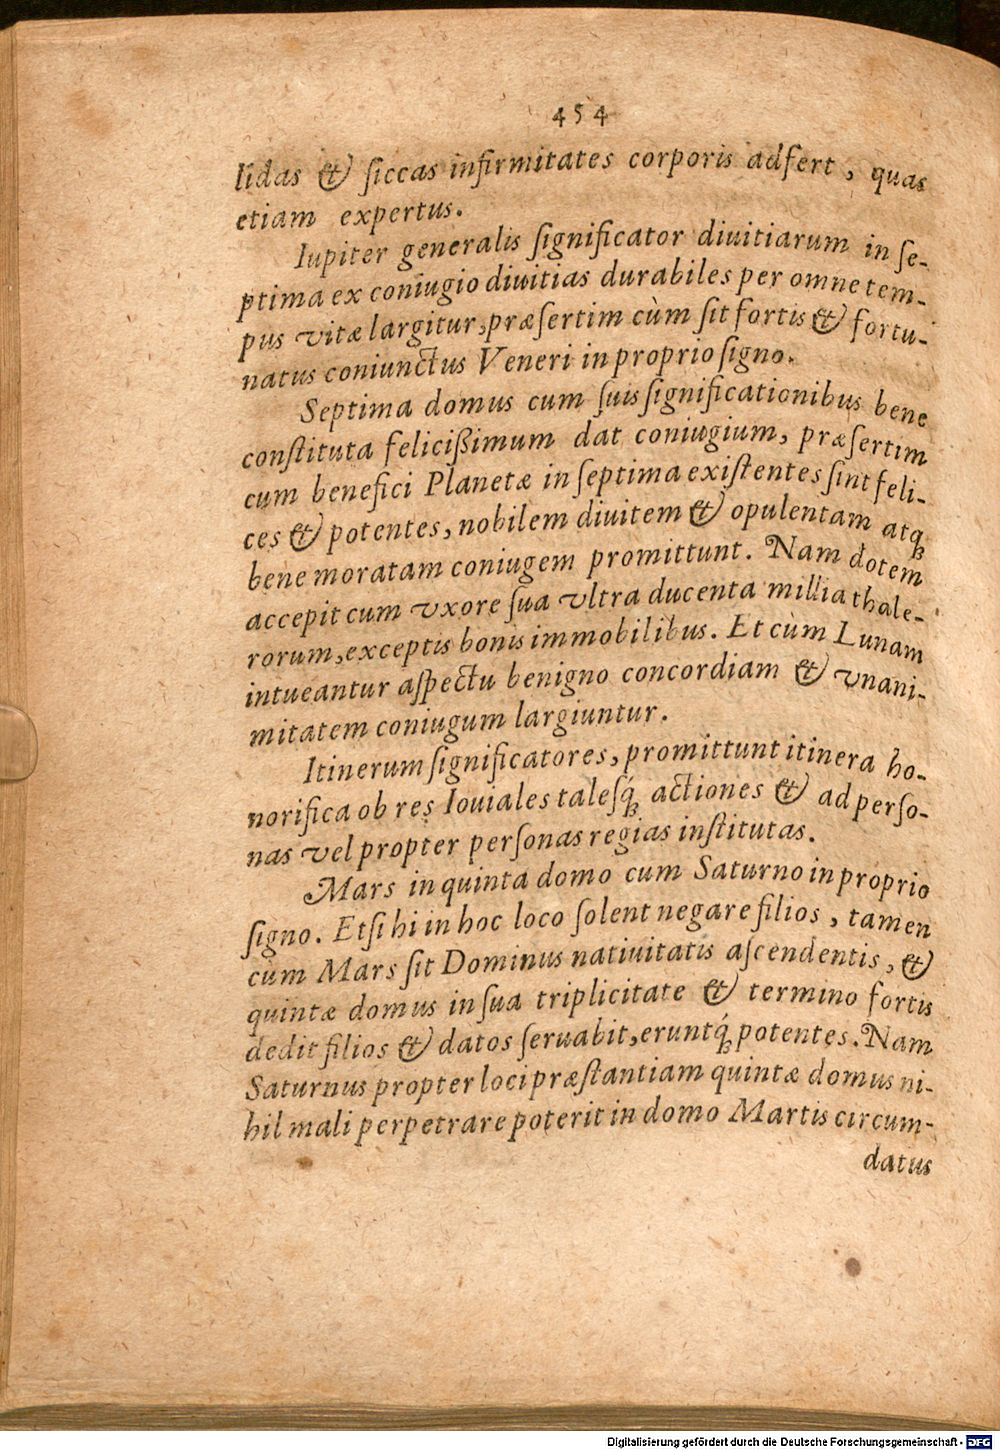 454
lidas & ſiccas infirmitates corporis adfert, quas
etiam expertus.
Iupiter generalis ſignificator diuitiarum in ſe-
ptima ex coniugio diuitias durabiles per omne tem-
pus vitæ largitur, præſertim cùm ſit fortis & fortu-
natus coniunctus Veneri in proprio ſigno.
Septima domus cum ſuis ſignificationibus bene
conſtituta feliciſsimum dat coniugium, præſertim
cum benefici Planetæ in ſeptima exiſtentes ſint feli-
ces & potentes, nobilem diuitem & opulentam atq;
bene moratam coniugem promittunt. Nam dotem
accepit cum vxore ſua vltra ducenta millia thale-
rorum, exceptis bonis immobilibus. Et cùm Lunam
intueantur aſpectu benigno concordiam & vnani-
mitatem coniugum largiuntur.
Itinerum ſignificatores, promittunt itinera ho-
norifica ob res Iouiales taleſq́; actiones & ad perſo-
nas vel propter perſonas regias inſtitutas.
Mars in quinta domo cum Saturno in proprio
ſigno. Etſi hi in hoc loco ſolent negare filios, tamen
cùm Mars ſit Dominus natiuitatis aſcendentis, &
quintæ domus in ſua triplicitate & termino fortis
dedit filios & datos ſeruabit, eruntq́; potentes. Nam
Saturnus propter loci præſtantiam quintæ domus ni-
hil mali perpetrare poterit in domo Martis circum-
datus
Digitalisierung gefördert durch die Deutsche Forschungsgemeinschaft - DFG